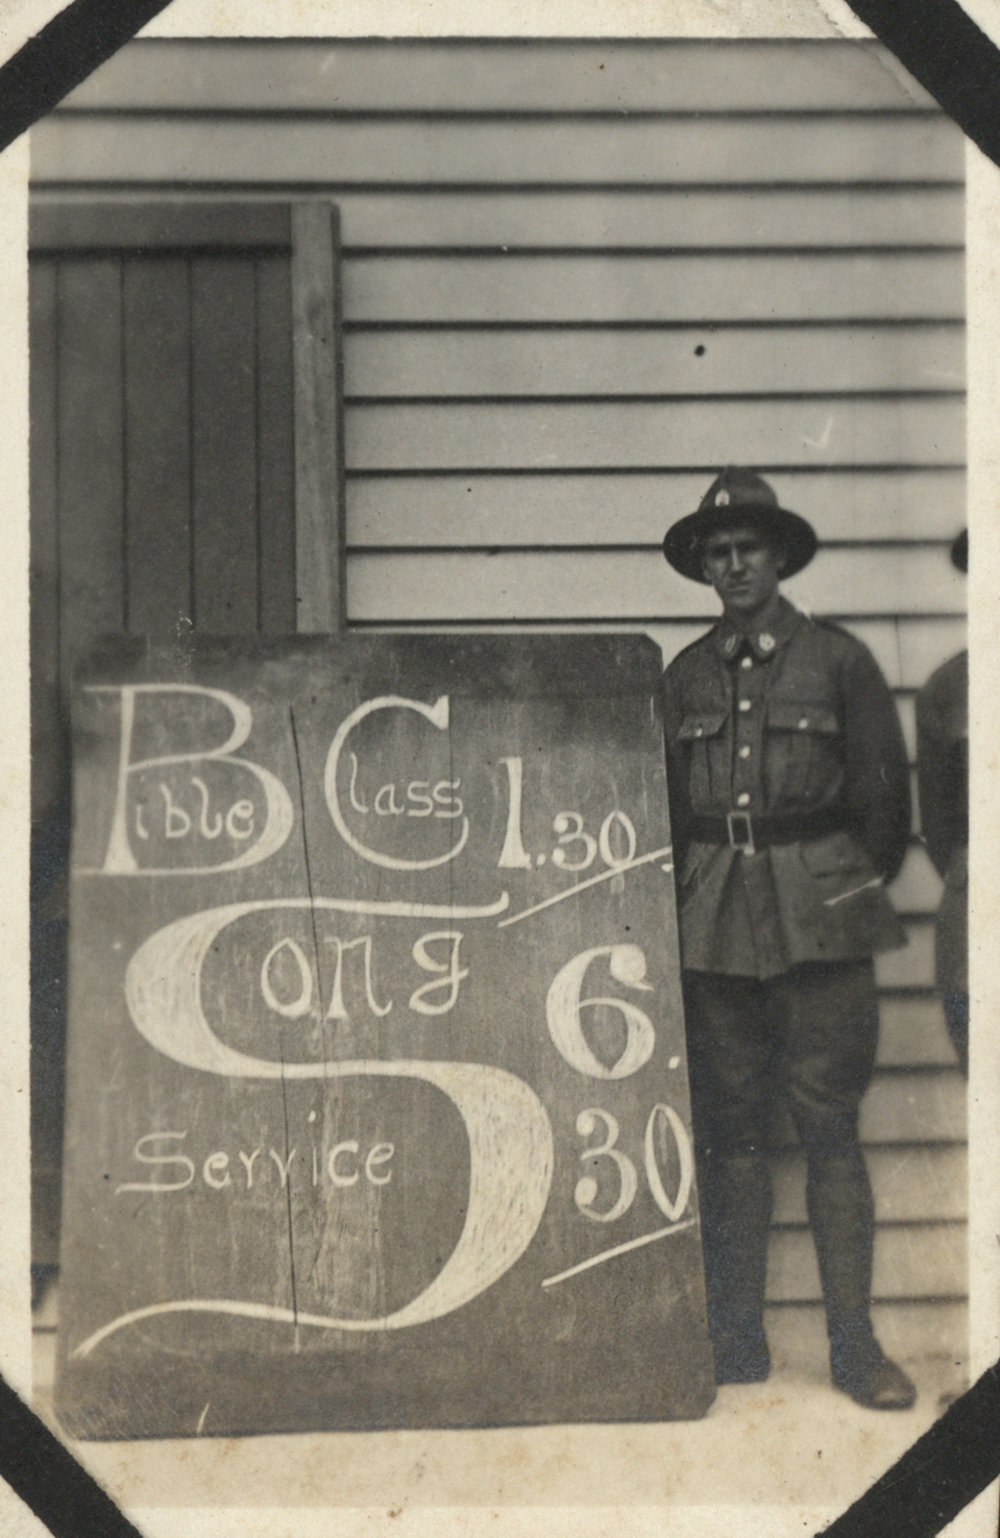 Bible Class 1.30.
Song 6.
Service 30